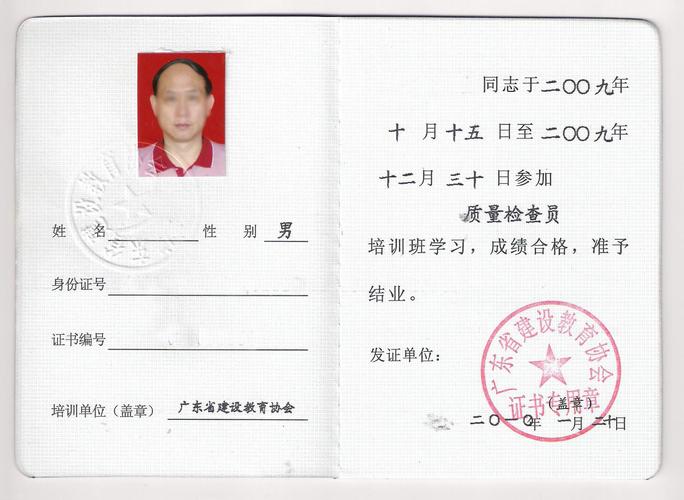 姓 名 性 别 男
身份证号
证书编号
培训单位（盖章） 广东省建设教育协会
同志于二〇〇九年
十 月 十五 日至 二〇〇九年
十二月 三十 日参加
质量检查员
培训班学习，成绩合格，准予
结业。
发证单位：
广东省建设教育协会
证书专用章
（盖章）
二〇一〇年 一月二十日